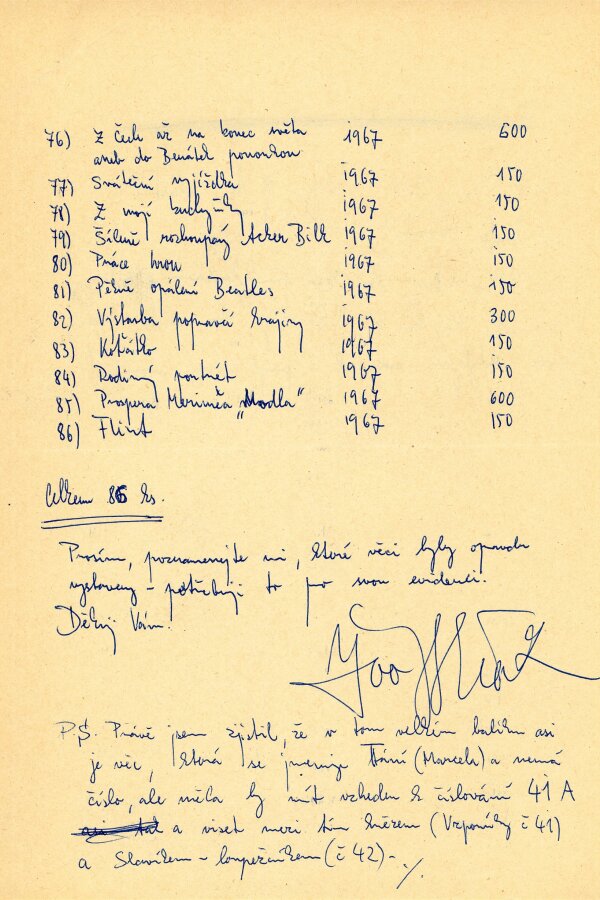 76) Z Čech až na konec světa 1967 600
aneb do Benátek ponorkou
77) Sváteční vyjížďka 1967 150
78) Z mojí kuchyňky 1967 150
79) Šíleně rozhoupaný Acker Bilk 1967 150
80) Práce hrou 1967 150
81) Pěkně opálení Beatles 1967 150
82) Výstavba popravčí krajiny 1967 300
83) Koťátko 1967 150
84) Rodinný portrét 1967 150
85) Prospera Meriméa „Modla" 1967 600
86) Flirt 1967 150
Celkem 86 ks.
Prosím, poznamenejte mi, které věci byly opravdu
vystaveny – potřebuji to pro svou evidenci.
Děkuji Vám.
P.S. Právě jsem zjistil, že v tom velkém balíku asi
je věc, která se jmenuje Paní (Marcela) a nemá
číslo, ale měla by mít vzhledem k číslování 41 A
a viset mezi tím knězem (Vzpomínky č 41)
a Slavíkem – loupežníkem (č 42) – ./.